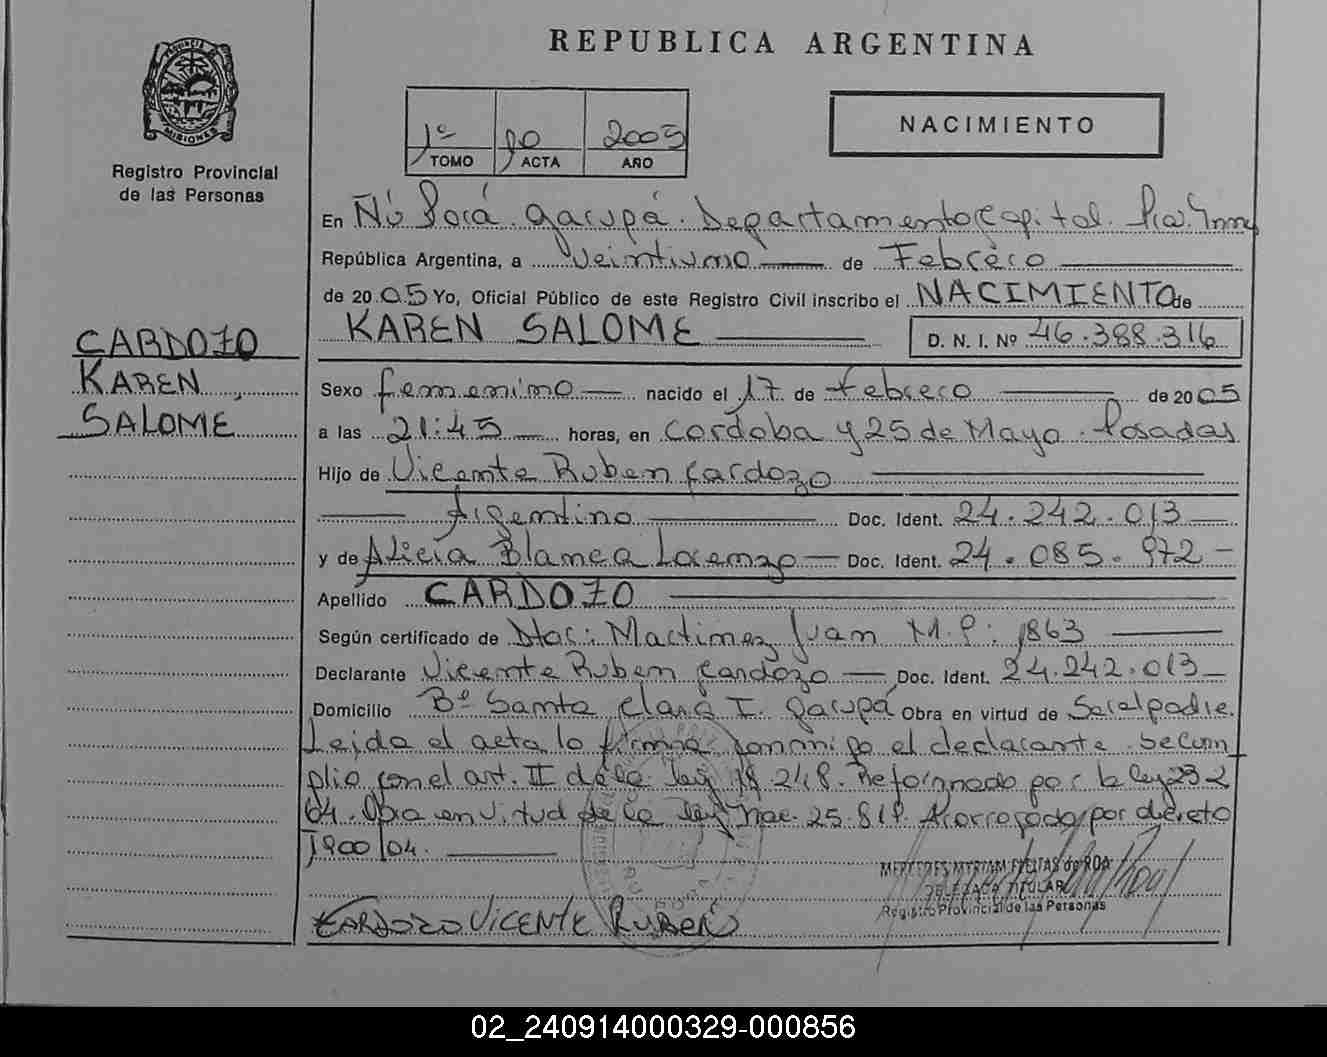 REPUBLICA ARGENTINA
PROVINCIA DE
MISIONES
Registro Provincial
de las Personas
1º 90 2005
TOMO ACTA AÑO
NACIMIENTO
En Ñu Porá. Garupá. Departamento Capital. Pia.
República Argentina, a veintiuno de Febrero
de 2005 Yo, Oficial Público de este Registro Civil inscribo el NACIMIENTO de
KAREN SALOME D. N. I. Nº 46.388.316
CARDOZO
KAREN
SALOME
Sexo femenino nacido el 17 de Febrero de 2005
a las 21:45 horas, en Cordoba y 25 de Mayo. Posadas
Hijo de Vicente Ruben Cardozo
Argentino Doc. Ident. 24.242.013
y de Alicia Blanca Lorenzo Doc. Ident. 24.085.972
Apellido CARDOZO
Según certificado de Dtor: Martinez Juan M.P: 1863
Declarante Vicente Ruben Cardozo Doc. Ident. 24.242.013
Domicilio Bº Santa Clara I. Garupá Obra en virtud de Ser el padre.
Leida el acta lo firma conmigo el declarante. Se cum
plio con el art. II de la ley 18.248. Reformado por la ley 23.2
64. Obra en virtud de la ley Nac. 25.819. Prorrogada por decreto
1900/04.
MERCEDES MYRIAM FREITAS de ROA
DELEGADA TITULAR
Registro Provincial de las Personas
CARDOZO VICENTE RUBEN
02_240914000329-000856